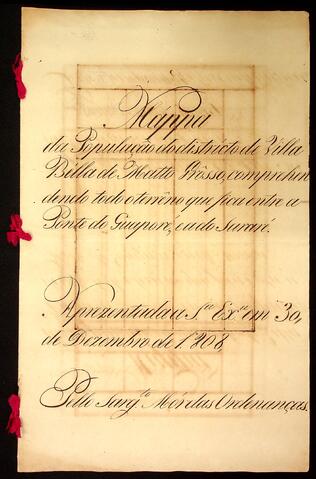 Mappa
da População do districto de Villa
Bella de Matto Grôsso, comprehen
dendo todo o terêno que fica entre a
Ponte do Guaporé, e a do Sararé.
Aprezentada a S.ª Ex.ª em 30,
de Dezembro de 1808,
Pello Sarg.to Mór das Ordenanças.